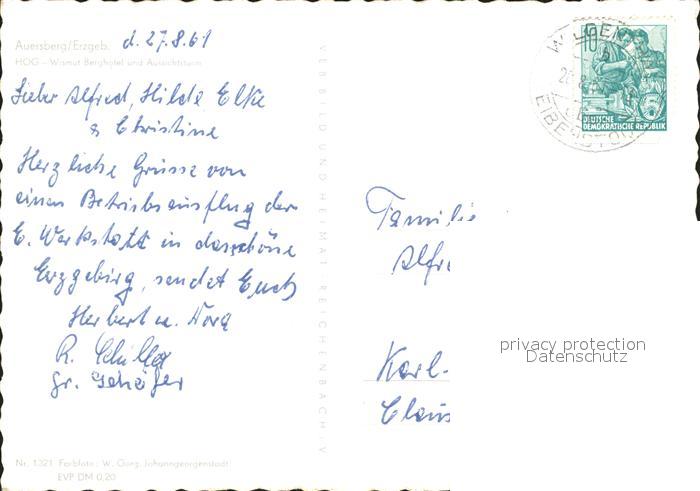 Auersberg/Erzgeb. d. 27.8.61
HOG - Wismut Berghotel und Aussichtsturm
Lieber Alfred, Hilde Elke
& Christine
Herzliche Grüsse von
einen Betriebsausflug der
E. Werkstatt in das schöne
Erzgebirg, sendet Euch
Herbert u. Nora
R.
Gr. Schäfer
Nr. 1321 Farbfoto: W. Gorg, Johanngeorgenstadt
EVP DM 0,20
VEB BILD UND HEIMAT REICHENBACH i. V.
10
DEUTSCHE
DEMOKRATISCHE REPUBLIK
EIBENSTOCK
Familie
Alfr
privacy protection
Datenschutz
Karl-
Claus